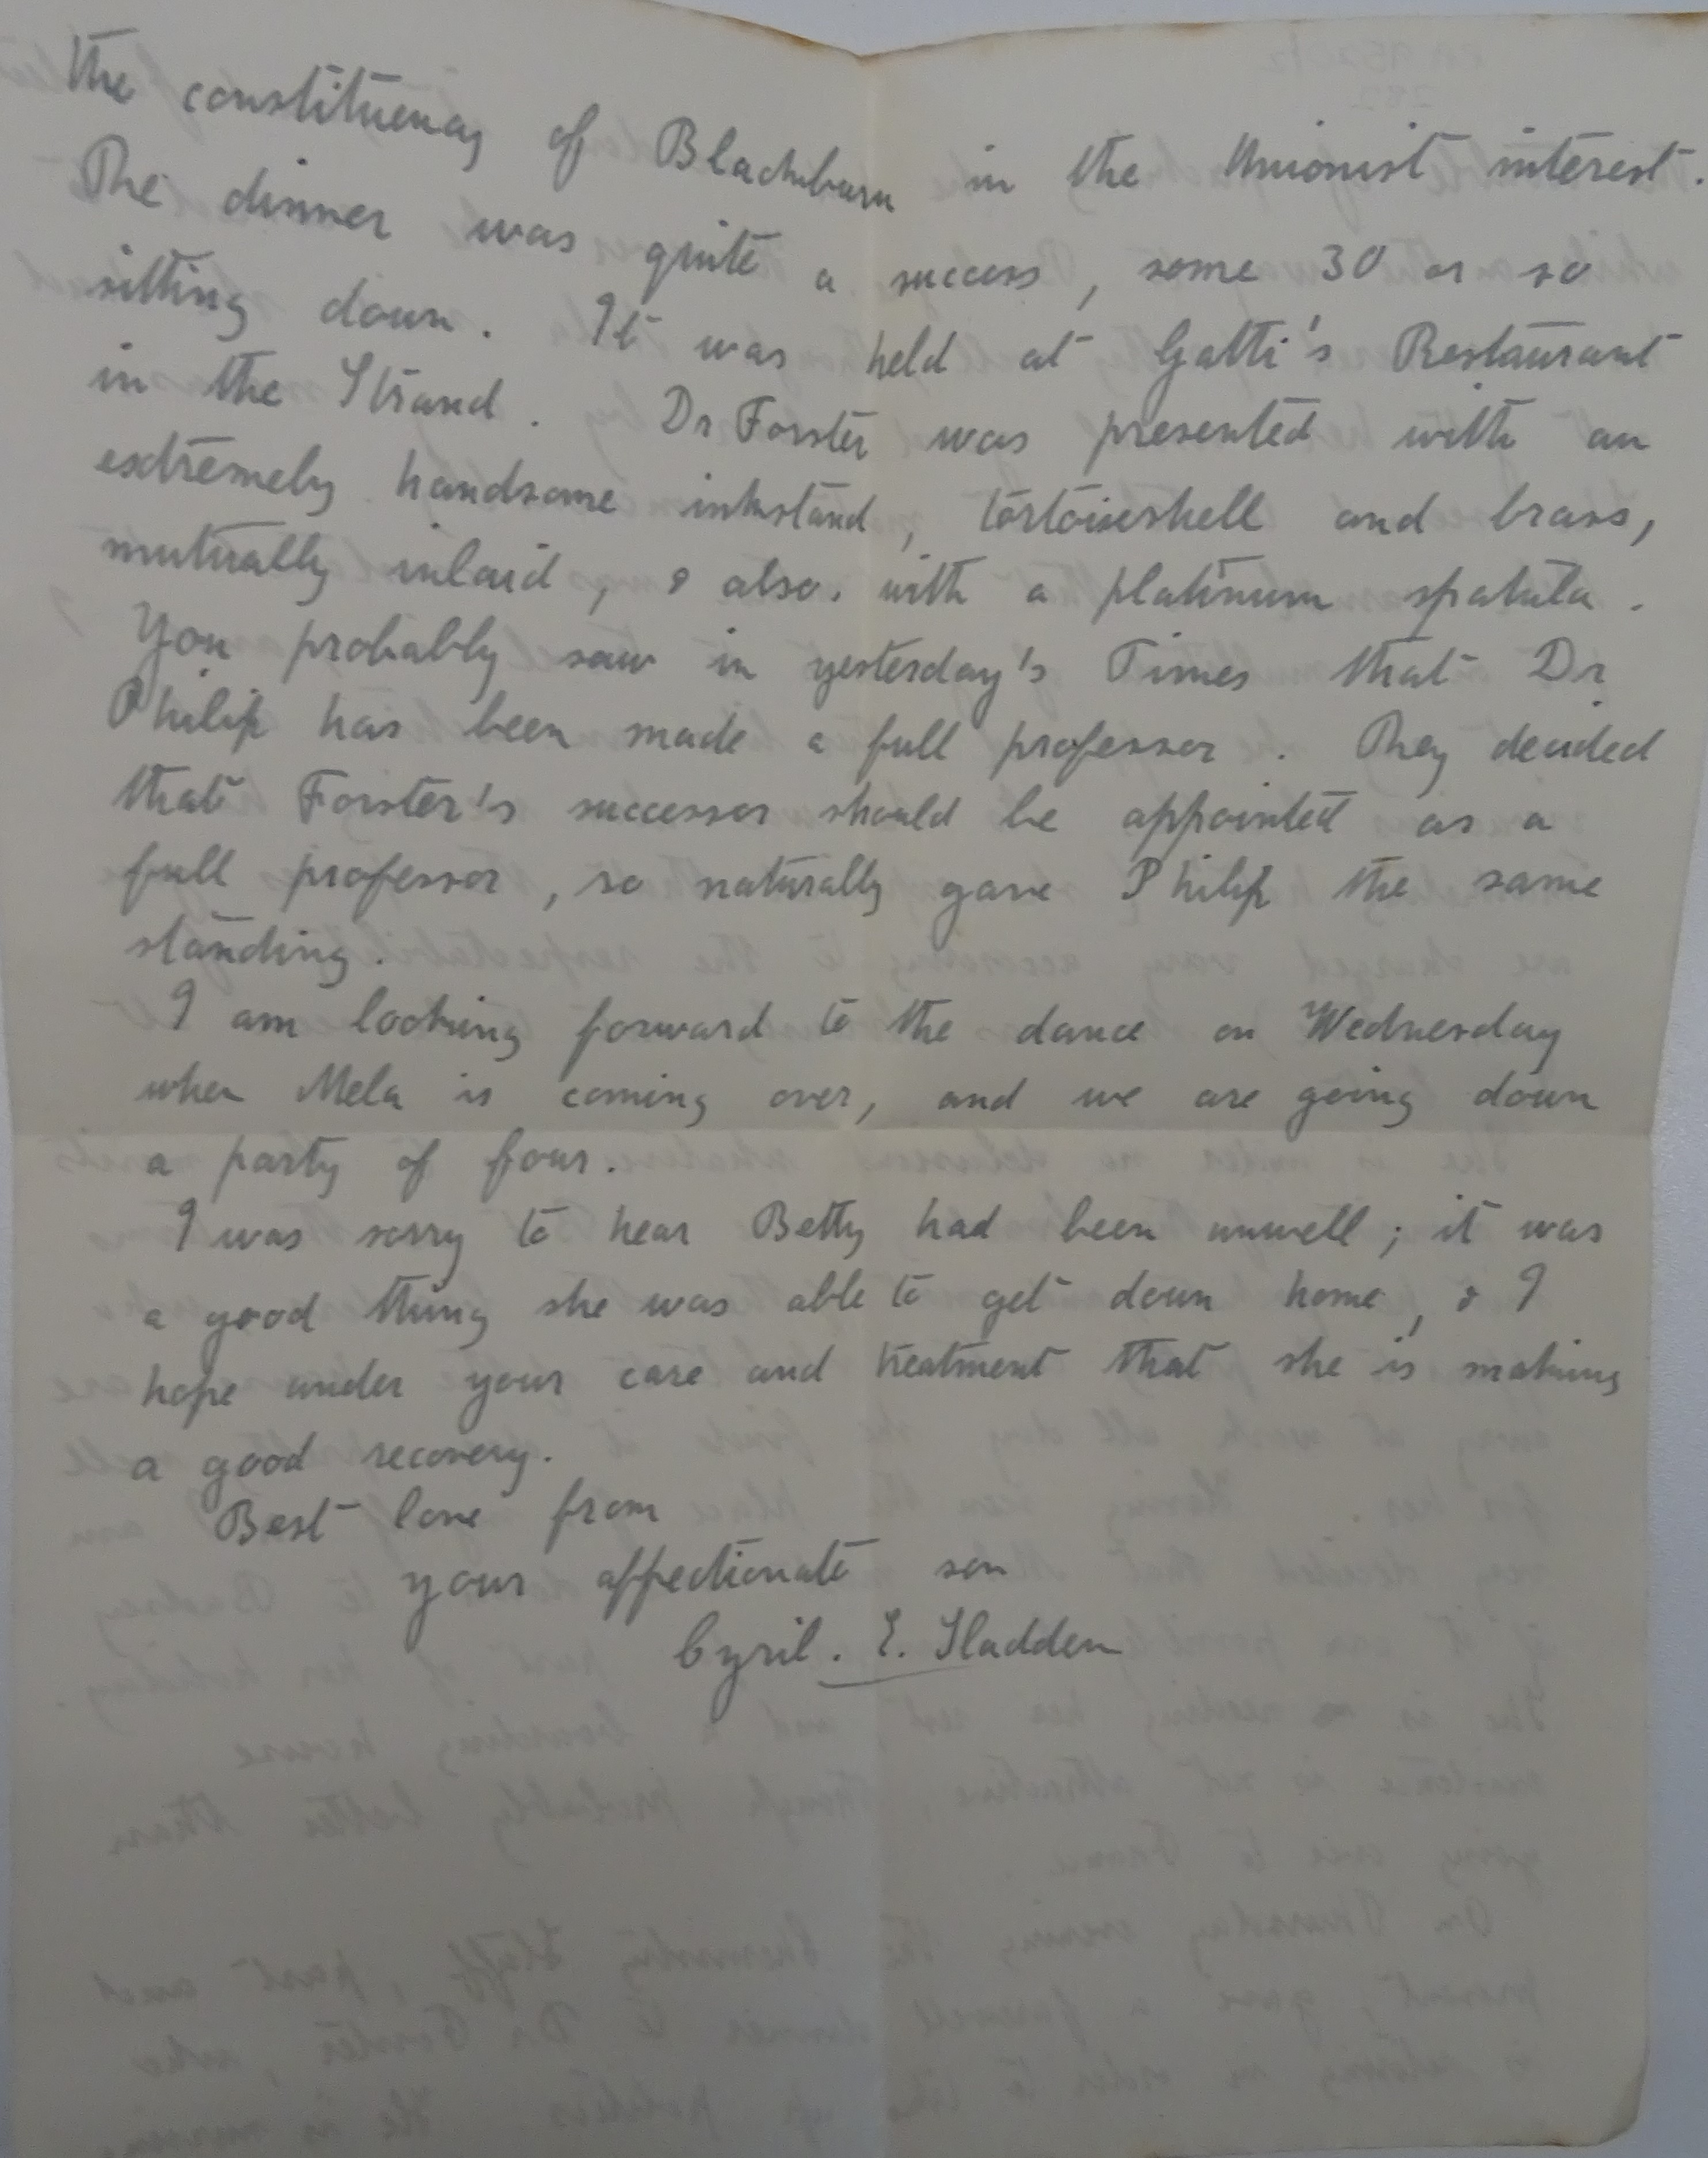 the constituency of Blackburn in the Unionist interest.
The dinner was quite a success, some 30 or so
sitting down. It was held at Gatti's Restaurant
in the Strand. Dr Forster was presented with an
extremely handsome inkstand, tortoiseshell and brass,
mutually inlaid, & also, with a platinum spatula.
You probably saw in yesterday's Times that Dr
Philip has been made a full professor. They decided
that Forster's successor should be appointed as a
full professor, so naturally gave Philip the same
standing.
I am looking forward to the dance on Wednesday
when Mela is coming over, and we are going down
a party of four.
I was sorry to hear Betty had been unwell; it was
a good thing she was able to get down home, & I
hope under your care and treatment that she is making
a good recovery.
Best love from
your affectionate son
Cyril. E. Sladden